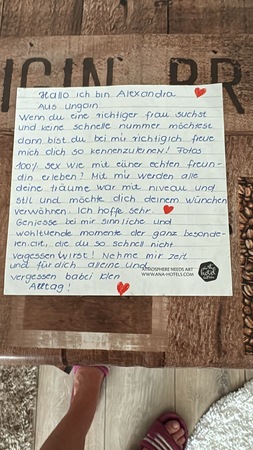 OIN PR
Hallo ich bin Alexandra
Aus ungain
Wenn du eine richtiger frau suchst
und keine schnelle nummer möchtest
dann bist du bei mir richtigich freue
mich dich so kennenzulernen! Fotos
100% sex wie mit einer echten freun-
din erleben? Mit mir werden alle
deine träume war mit niveau und
stil und möchte dich deinem wünchen
verwöhnen. Ich hoffe sehr.
Geniesse bei mir sinnliche und
wohltuende momente der ganz besonde-
ren art, die du so schnell nicht
vergessen wirst! Nehme mir zeit
und für dich alleine und
vergessen babei klen
Alltag!
ATMOSPHERE NEEDS ART
WWW.ANA-HOTELS.COM